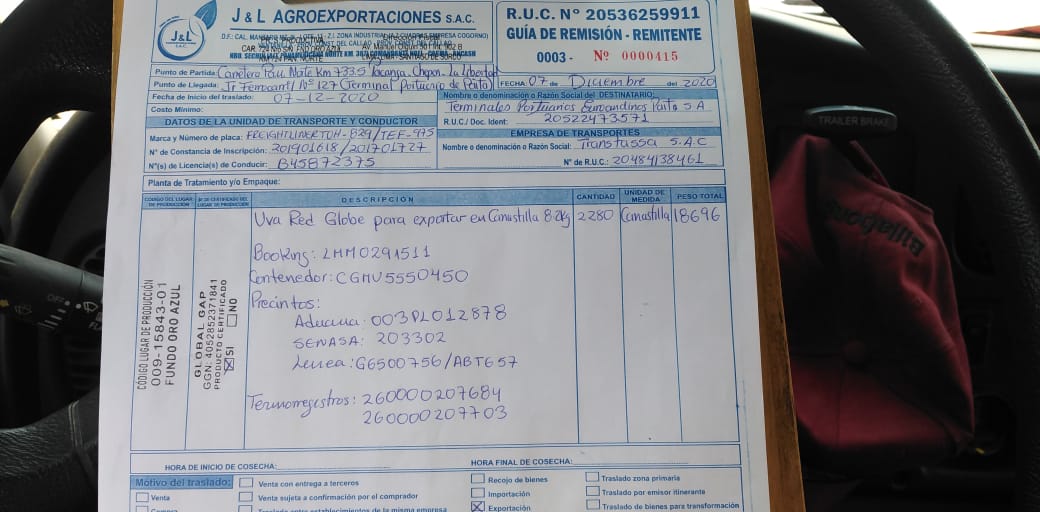 J&L
S.A.C.
J & L AGROEXPORTACIONES S.A.C.
R.U.C. N° 20536259911
GUÍA DE REMISIÓN - REMITENTE
0003 - Nº 0000415
Punto de Partida: Carretera Pan. Norte Km 733.5 Pacanga - Chepen - La Libertad
Punto de Llegada: Jr Ferrocarril Nº 127 (Terminal Portuario de Paita)
FECHA 07 de Diciembre del 2020
Fecha de Inicio del traslado: 07-12-2020
Costo Mínimo:
Nombre o denominación o Razón Social del DESTINATARIO:
Terminales Portuarios Euroandinos Paita S.A.
R.U.C/ Doc. Ident: 20522473571
DATOS DE LA UNIDAD DE TRANSPORTE Y CONDUCTOR
Marca y Número de placa: FREIGHTLINER T0H-829/TEF-975
N° de Constancia de Inscripción: 201901618/201701727
N°(s) de Licencia(s) de Conducir: B45872375
EMPRESA DE TRANSPORTES
Nombre o denominación o Razón Social: Transtassa S.A.C
N° de R.U.C.: 20484138461
Planta de Tratamiento y/o Empaque:
CÓDIGO DEL LUGAR DE PRODUCCIÓN
N° DE CERTIFICADO DEL LUGAR DE PRODUCCIÓN
DESCRIPCIÓN
CANTIDAD
UNIDAD DE MEDIDA
PESO TOTAL
Uva Red Globe para exportar en Canastilla 8.2kg 2280 Canastilla 18696
Booking: LMM0291511
Contenedor: CGMU5550450
Precintos:
Aduana: 003PL012878
SENASA: 203302
Linea: G6500756/ABT657
Termorregistros: 260000207684
260000207703
CÓDIGO LUGAR DE PRODUCCIÓN
009-15843-01
FUNDO ORO AZUL
GLOBAL GAP
GGN: 4052852371841
PRODUCTO CERTIFICADO
X SI NO
HORA DE INICIO DE COSECHA:
HORA FINAL DE COSECHA:
Motivo del traslado:
Venta con entrega a terceros
Recojo de bienes
Traslado zona primaria
Venta
Venta sujeta a confirmación por el comprador
Importación
Traslado por emisor itinerante
Compra
Traslado entre establecimientos de la misma empresa
X Exportación
Traslado de bienes para transformación
TRAILER BRAKE
Billabong
OFF